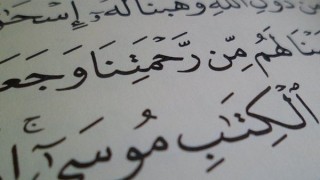 مِن دُونِ اللَّهِ وَهَبْنَا لَهُۥٓ إِسْحَـٰ
ـنَا لَهُم مِّن رَّحْمَتِنَا وَجَعَـ
ٱلْكِتَـٰبِ مُوسَىٰٓ ۚ